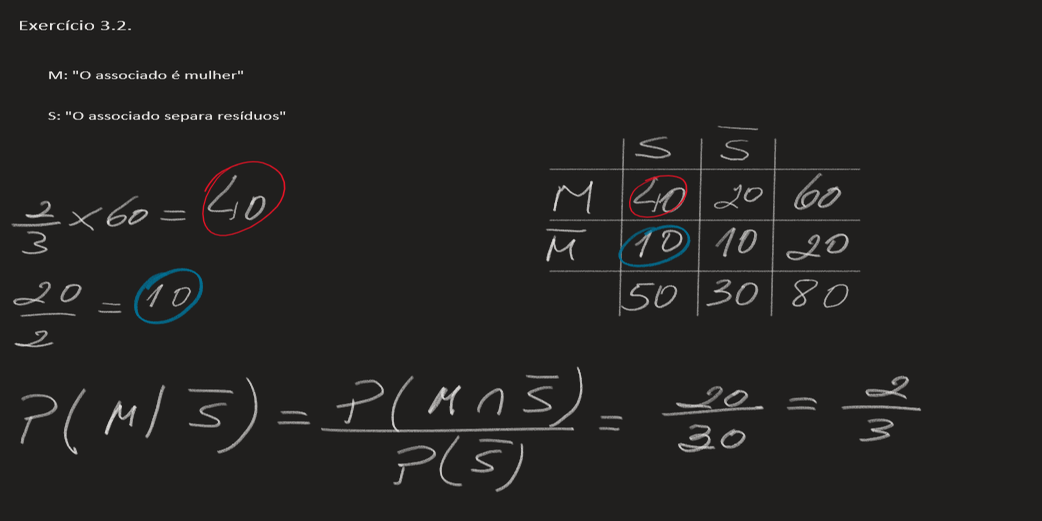 Exercício 3.2.
M: "O associado é mulher"
S: "O associado separa resíduos"
2/3 × 60 = 40
20/2 = 10
S S̅
M 40 20 60
M̅ 10 10 20
50 30 80
P(M|S̅) = P(M∩S̅)/P(S̅) = 20/30 = 2/3